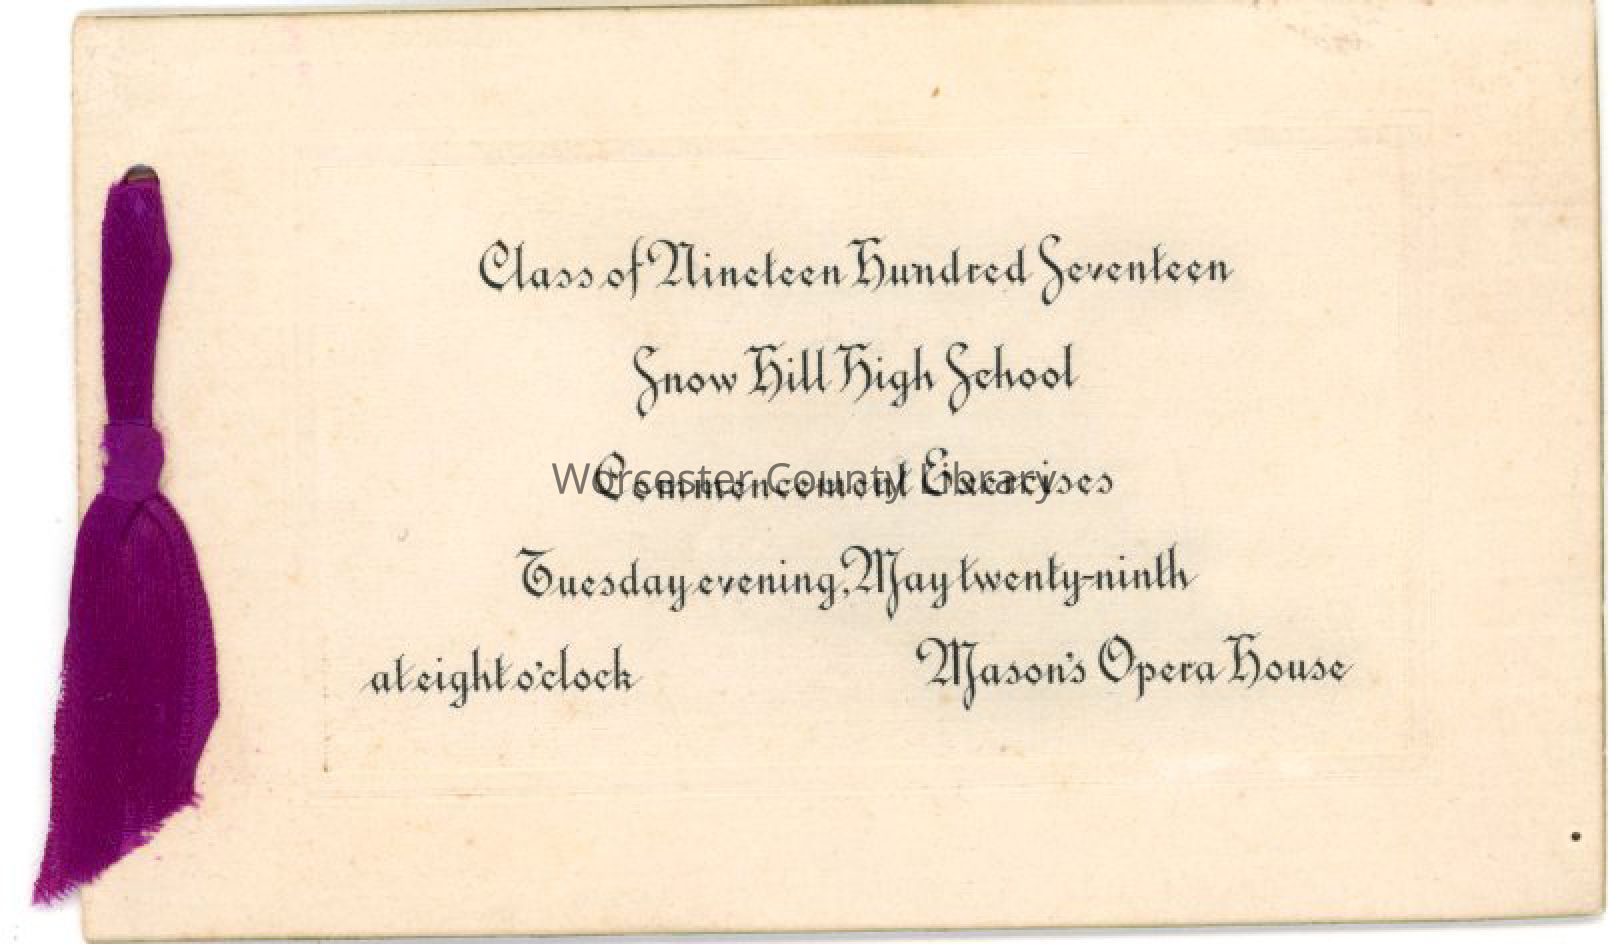 Class of Nineteen Hundred Seventeen
Snow Hill High School
Commencement Exercises
Worcester County Library
Tuesday evening, May twenty-ninth
at eight o'clock Mason's Opera House